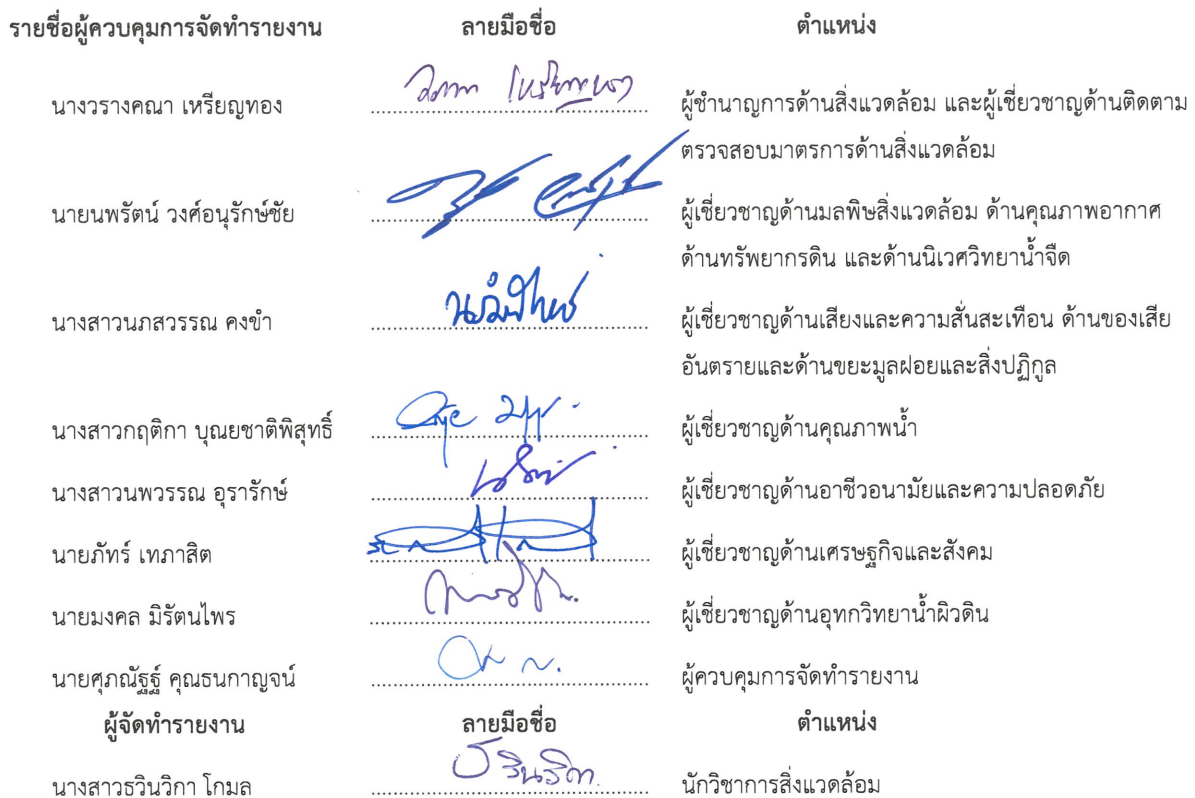 รายชื่อผู้ควบคุมการจัดทำรายงาน ลายมือชื่อ ตำแหน่ง
นางวรางคณา เหรียญทอง ผู้ชำนาญการด้านสิ่งแวดล้อม และผู้เชี่ยวชาญด้านติดตาม
ตรวจสอบมาตรการด้านสิ่งแวดล้อม
นายนพรัตน์ วงศ์อนุรักษ์ชัย ผู้เชี่ยวชาญด้านมลพิษสิ่งแวดล้อม ด้านคุณภาพอากาศ
ด้านทรัพยากรดิน และด้านนิเวศวิทยาน้ำจืด
นางสาวนภสวรรณ คงขำ ผู้เชี่ยวชาญด้านเสียงและความสั่นสะเทือน ด้านของเสีย
อันตรายและด้านขยะมูลฝอยและสิ่งปฏิกูล
นางสาวกฤติกา บุณยชาติพิสุทธิ์ ผู้เชี่ยวชาญด้านคุณภาพน้ำ
นางสาวนพวรรณ อุรารักษ์ ผู้เชี่ยวชาญด้านอาชีวอนามัยและความปลอดภัย
นายภัทร์ เทภาสิต ผู้เชี่ยวชาญด้านเศรษฐกิจและสังคม
นายมงคล มิรัตนไพร ผู้เชี่ยวชาญด้านอุทกวิทยาน้ำผิวดิน
นายศุภณัฐฐ์ คุณธนกาญจน์ ผู้ควบคุมการจัดทำรายงาน
ผู้จัดทำรายงาน ลายมือชื่อ ตำแหน่ง
นางสาวธวินวิกา โกมล นักวิชาการสิ่งแวดล้อม